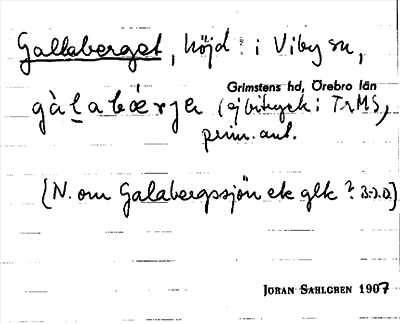 Gallaberget, höjd i Viby sn,
Grimstens hd, Örebro län
gàlabærja (ej bitryck: TrMS,
prim. ant.
(N. om Galabergssjön ek glk? B-J.D.)
JÖRAN SAHLGREN 1907